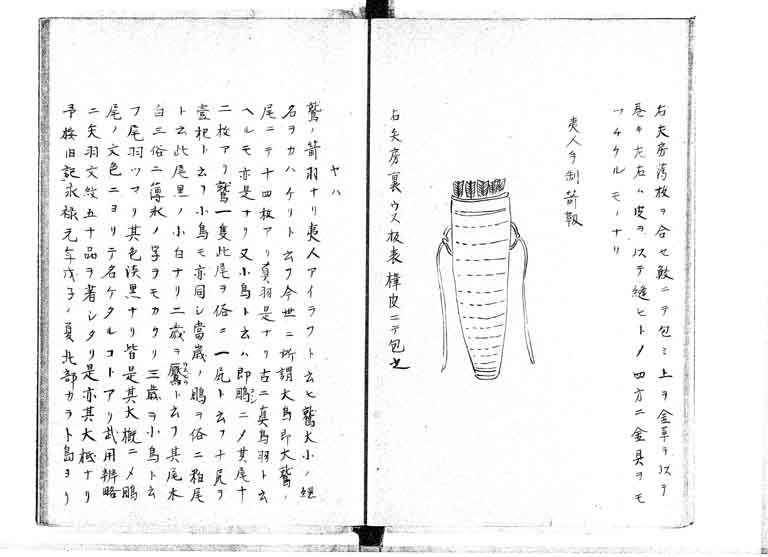 右矢房薄板ヲ合セ鮫ニテ包ミ上ヲ金革ヲ以テ
巻キ左右ハ皮ヲ以テ縫ヒトメ四方ニ金具ヲモ
ツケタルモノナリ
夷人手制箭靫
右矢房裏ウス板表樺皮ニテ包也
ヤハ
鷲ノ箭羽ナリ夷人アイラフト云ヒ鷲大小ノ
名ヲカハケリト云フ今世ニ所謂大鳥即大鷲ノ
尾ニテ十四枚アリ真羽是ナリ古ニ真鳥羽ト云
ヘルモ亦是ナリ又小鳥ト云ハ即鵰ニメ其尾十
二枚アリ鷲一隻此尾ヲ俗ニ一尻ト云フ十尻ヲ
壹把ト云フ小鳥モ亦同シ當歳ノ鵰ヲ俗ニ粕尾
ト云此尾黒ノ小白ナリ二歳ヲ ト云フ其尾末
白三俗ニ薄氷ノ字ヲモカケリ三歳ヲ小鳥ト云
フ尾羽ツマリ其色淡黒ナリ皆是其大概ニメ鵰
尾ノ文色ニヨリテ名ケタルコトアリ武用辨略
ニ矢羽文紋五十品ヲ著シタリ是亦其大抵ナリ
予按旧記永禄元年戊午ノ夏北部カラト島ヨリ